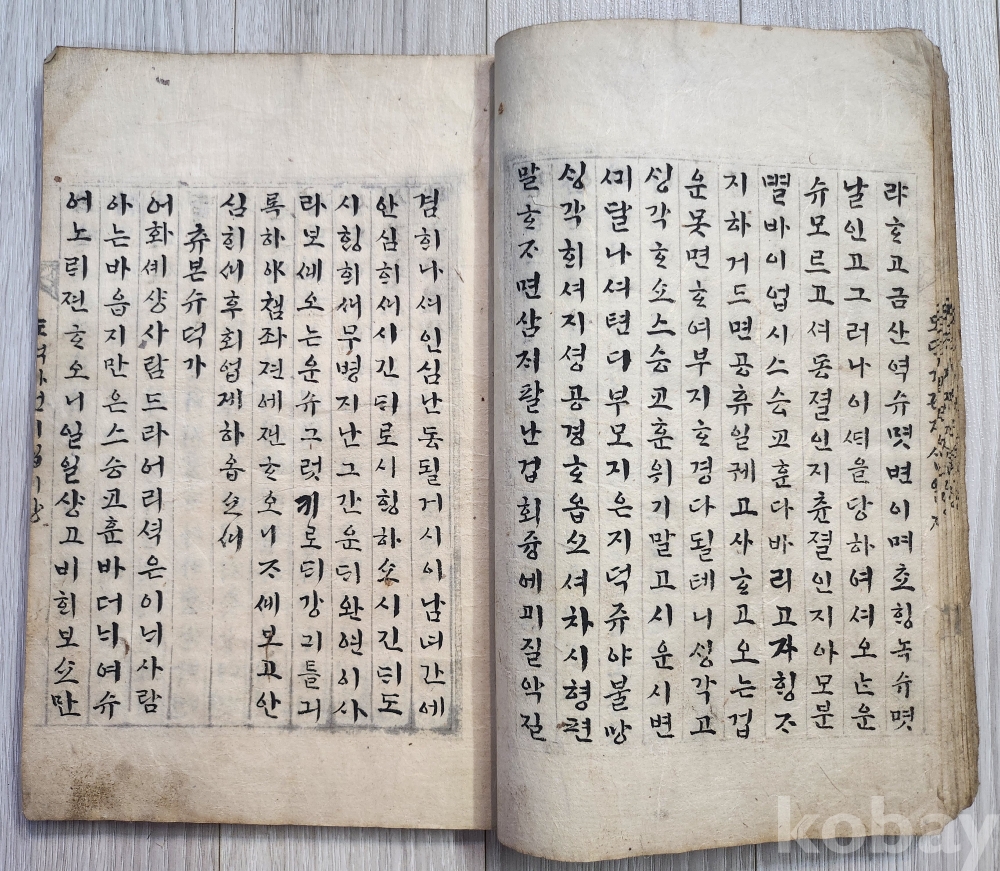 랴ᄒᆞ고금산역슈몃변이며쵸ᄒᆡᆼ녹슈몃
날인고그러나이셰을당하여셔오ᄂᆞᆫ운
슈모르고셔동졀인지츈졀인지아모분
별바이업시스승교훈다바리고자ᄒᆡᆼᄌᆞ
지하거드면공휴일궤고사ᄒᆞ고오는겁
운못면ᄒᆞ여부지ᄒᆞ경다될테니ᄉᆡᆼ각고
ᄉᆡᆼ각ᄒᆞ소스승교훈위기말고시운시변
ᄯᆡ달나셔텬디부모지은지덕쥬야불망
ᄉᆡᆼ각ᄒᆡ셔지셩공경ᄒᆞ옵소셔차시형편
말ᄒᆞᄌᆞ면삼ᄌᆡ팔난겁회즁에괴질악질
겸ᄒᆡ나셔인심난동될거시이남녀간에
안심ᄒᆡ새시긴ᄃᆡ로시ᄒᆡᆼ하소시긴ᄃᆡ도
시ᄒᆡᆼᄒᆡ새무병지난그간운ᄃᆡ완연이사
라보세오는운슈구럿키로ᄃᆡ강긔틀긔
록하야쳠좌젼에젼ᄒᆞ오니ᄌᆞ셰보고안
심ᄒᆡ셔후회업게하옵소셔
츄본슈덕가
어화셰샹사람드라어리셕은이ᄂᆡ사람
아는바읍지만은스승교훈바더ᄂᆡ여슈
어노ᄅᆡ젼ᄒᆞ오니일일샹고비ᄒᆡ보소만
kobay